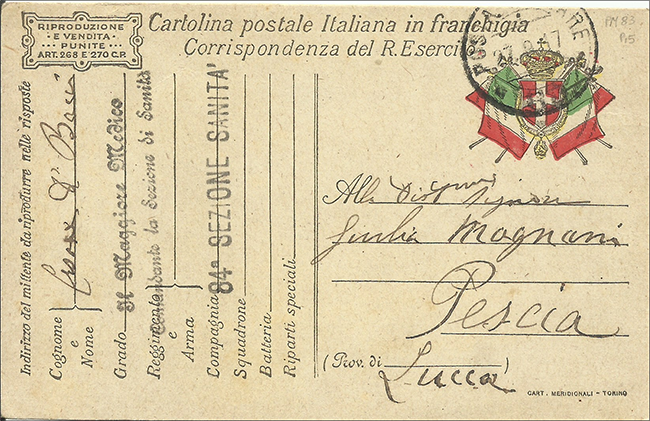 RIPRODUZIONE
E VENDITA
PUNITE
ART. 268 E 270 C.P.
Cartolina postale Italiana in franchigia
Corrispondenza del R. Eserci
POSTA
RE
27.9.17
PM 83
Indirizzo del mittente da riprodurre nelle risposte
Cognome
e
Nome
Grado Il Maggiore Medico
Reggimento Comandante la Sezione di Sanità
e
Arma
Compagnia 84ª SEZIONE SANITA'
Squadrone
Batteria
Riparti speciali
Alla Signora
Giulia Magnani
Pescia
(Prov. di
Lucca
CART. MERIDIONALI - TORINO